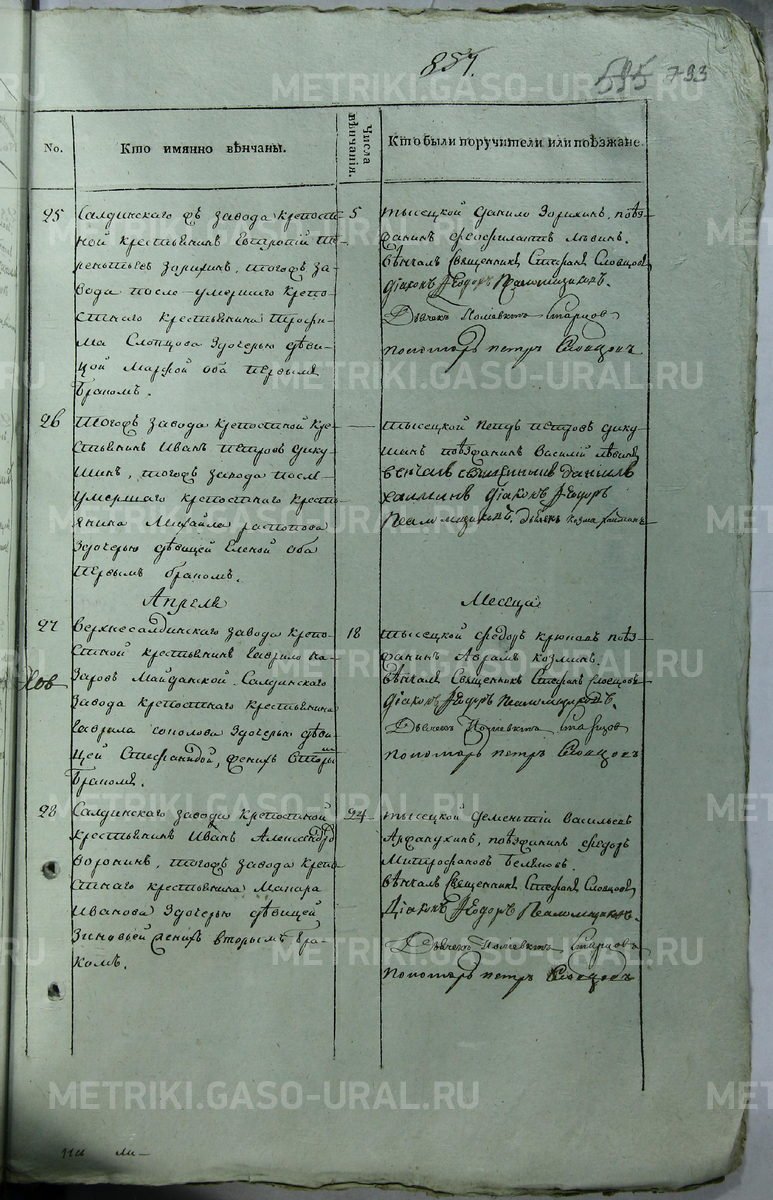 857.
595 793
No.
Кто имянно вѣнчаны.
Числа вѣнчанія.
Кто были поручители или поѣзжане.
25
Салдинскаго ж завода крепост-
ной крестьянинъ Евтропій Те-
рентьевъ Зорихинъ, тогожъ за-
вода после умершаго крепо-
стнаго крестьянина Трофи-
ма Слопцова здочерью дѣви-
цой Марфой оба первымъ
бракомъ.
5
тысецкой Данило Зорихинъ, поѣз-
жанинъ Феофилактъ Львинъ.
вѣнчалъ Священникъ Стефанъ Словцовъ
діаконъ Ѳеодоръ Псаломщиковъ.
Дьячекъ Полиевктъ Старцов
пономарь петръ Словцовъ
26
тогожъ завода крепостной кре-
стьянинъ Иванъ петровъ Дику-
шинъ, тогожъ завода посл-
умершаго крепостнаго кресть-
янина Михайла распопова
здочерью дѣвицей Еленой оба
первымъ бракомъ.
тысецкой петровъ Дику-
шинъ поѣзжанинъ Василий Львинъ
венчалъ священникъ Даниилъ
діаконъ Ѳеодоръ
Псаломщиковъ, дьячекъ козма
Апреля Месеца
27
верхнесалдинскаго завода крепо-
стной крестьянинъ Гаврило На-
заровъ Майданской Салдинскаго
завода крепостнаго крестьянина
Гаврила соколова здочерью дѣви-
цей Стефанидой, женихъ вторы
бракомъ.
18
тысецкой Федоръ крюковъ поѣз-
жанинъ Аврамъ козминъ.
вѣнчалъ Священникъ Стефанъ Словцовъ
діаконъ Ѳеодоръ Псаломщиковъ.
Дьячекъ Полиевктъ Старцов
пономарь петръ Словцовъ
28
Салдинскаго завода крепостной
крестьянинъ Иванъ Александро
Воронинъ, тогожъ завода крепо-
стнаго крестьянина Макара
Иванова здочерью дѣвицей
Зиновьей женихъ вторымъ бра-
комъ.
24
тысецкой Дементій Васильевъ
поѣзжанинъ Федоръ
Митрофановъ Беляковъ.
вѣнчалъ священникъ Стефанъ Словцовъ
Діаконъ Ѳеодоръ Псаломщиковъ.
Дьячекъ Полиевктъ Старцовъ
Пономарь петръ Словцовъ
METRIKI.GASO-URAL.RU